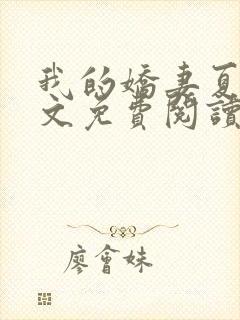 我的嬌妻夏
文免費閱讀
廖會妹